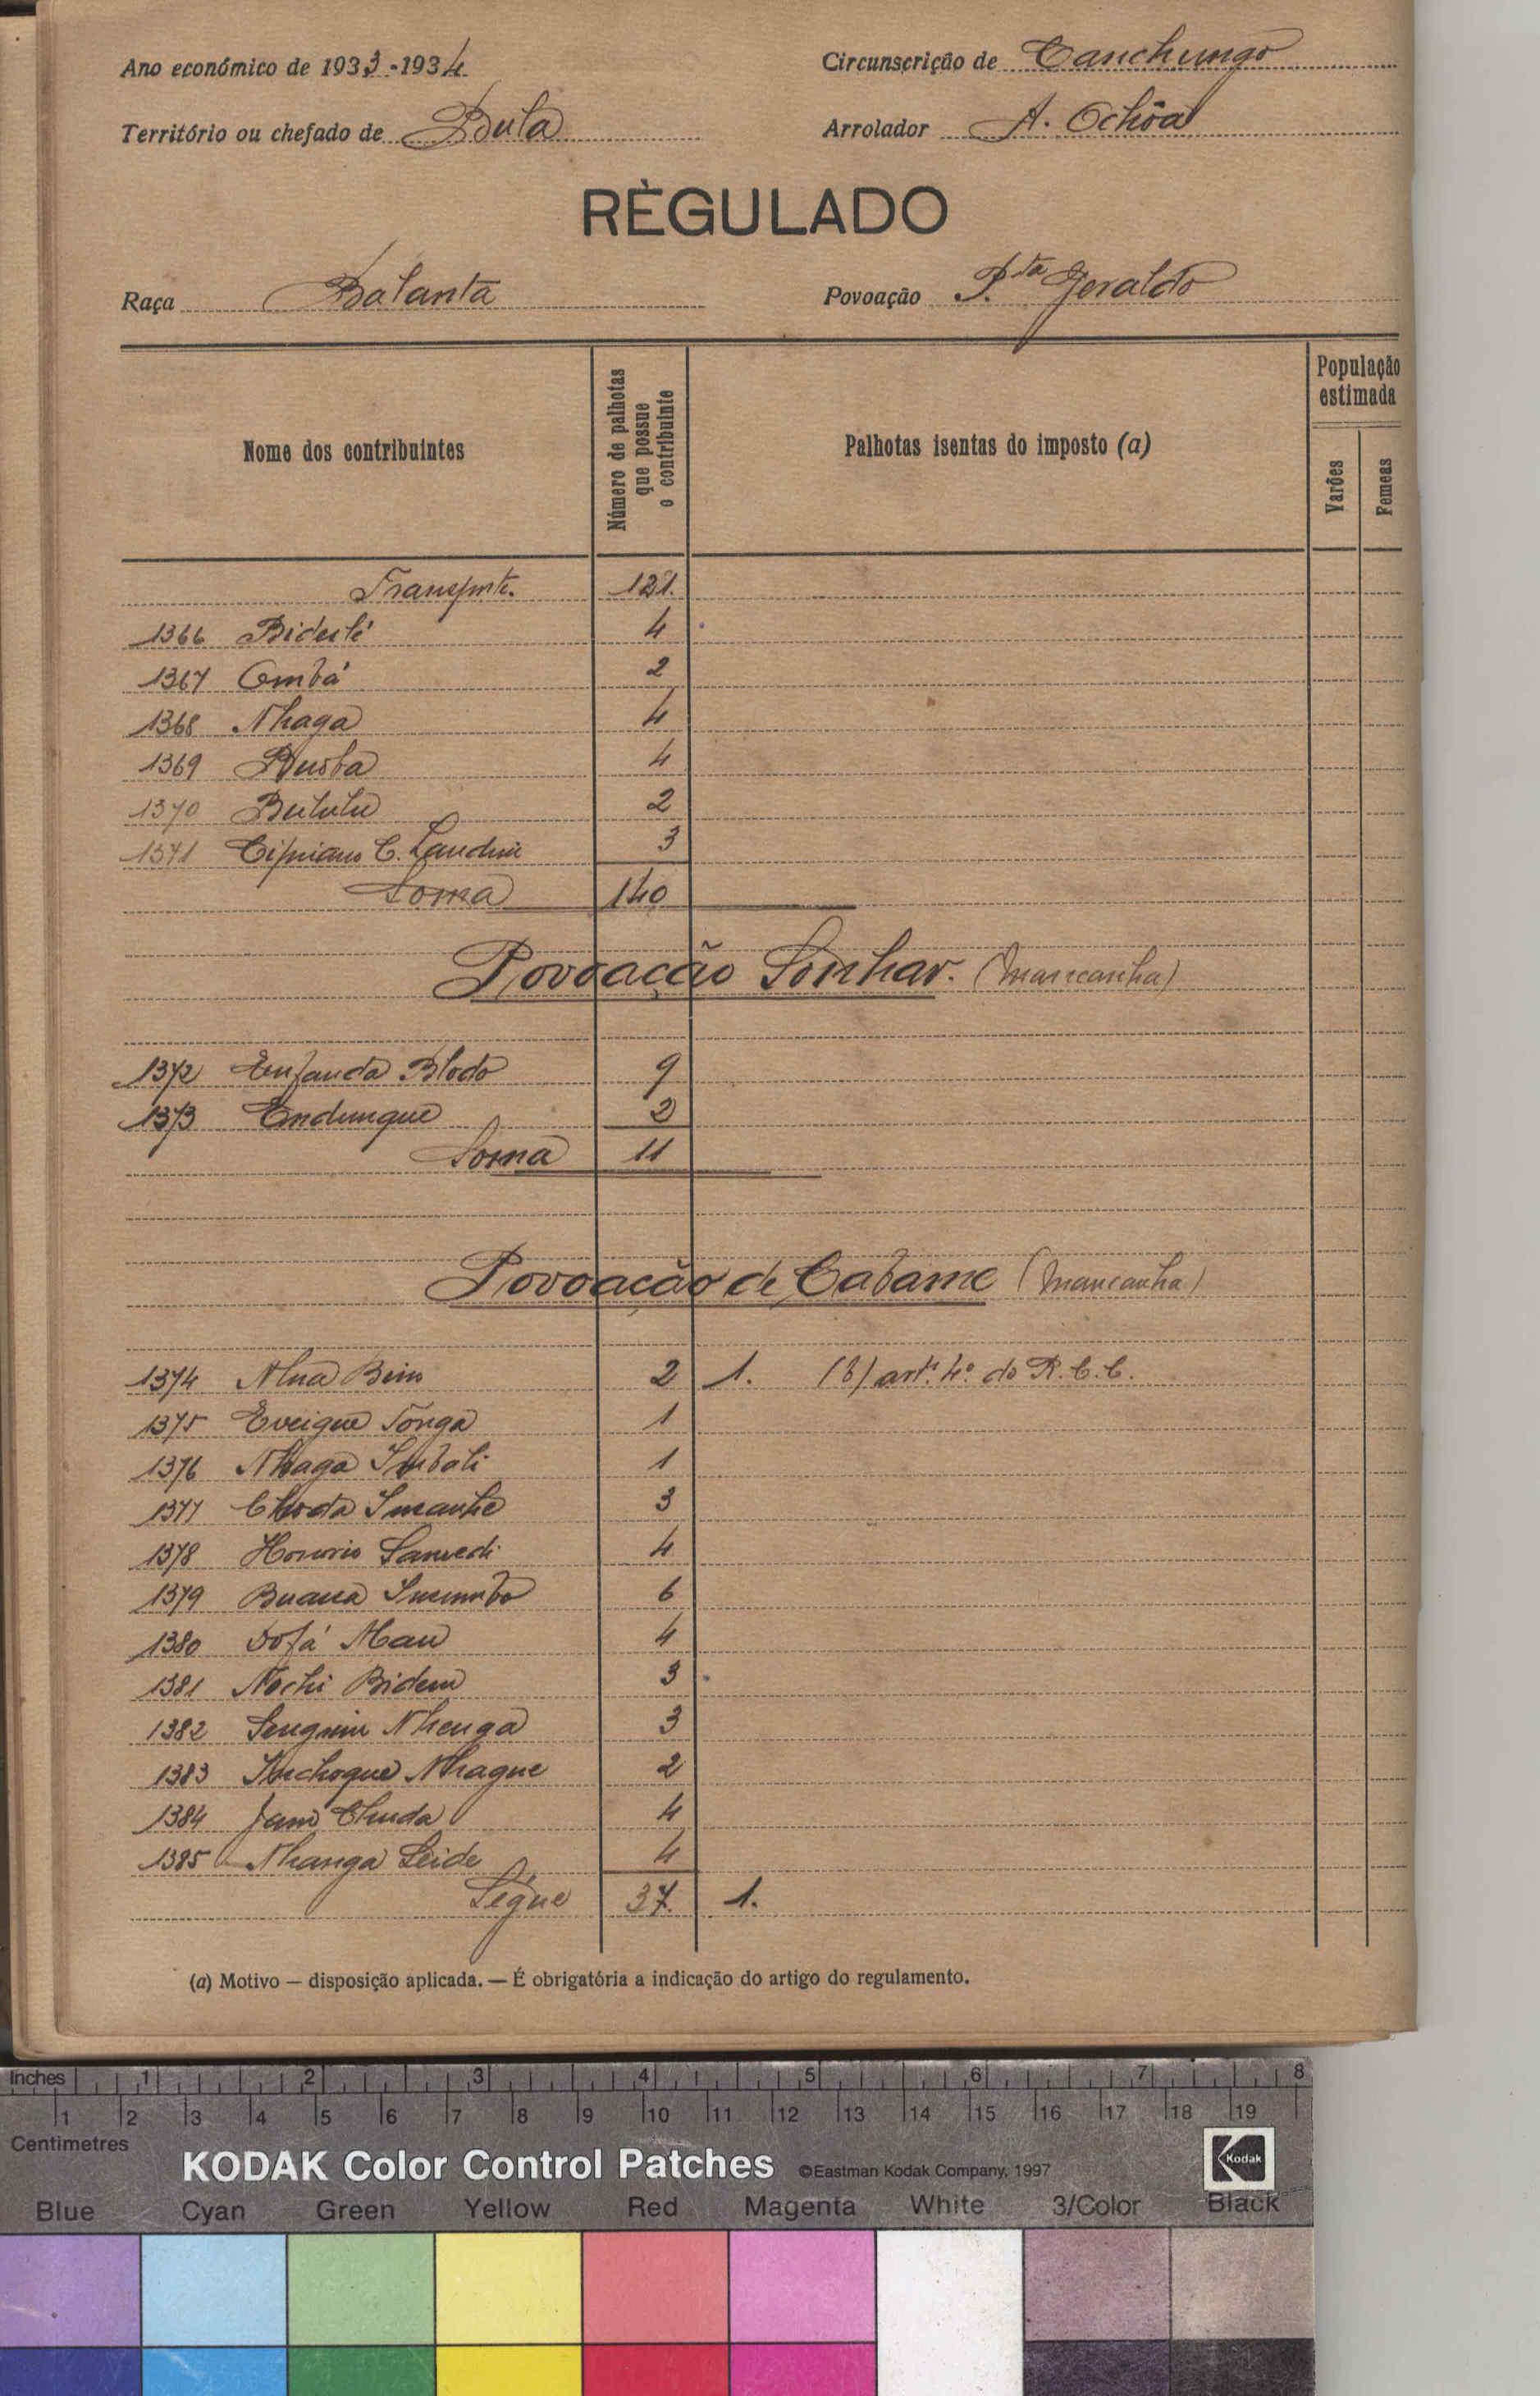 Ano económico de 1933-1934
Circunscrição de Canchungo
Território ou chefado de Bula
Arrolador A. Ochôa
RÈGULADO
Raça Balanta
Povoação P.ta Geraldo
Nome dos contribuintes
Número de palhotas que possue o contribuinte
Palhotas isentas do imposto (a)
População estimada
Varões
Femeas
Transporte. 121.
1366 4
1367 Ombá 2
1368 Nhaga 4
1369 4
1370 Bululu 2
1371 Cipriano C. Landim 3
Soma 140
Povoação Sonhar. (Mancanha)
1372 Enfanda Blodo 9
1373 Endungue 2
Soma 11
Povoação de Cabame (Mancanha)
1374 2 1. (b) art.º 4.º do R. C. C.
1375 Eveigue Tonga 1
1376 Nhaga Imbali 1
1377 3
1378 Honorio Samedi 4
1379 6
1380 4
1381 Nochi Bidem 3
1382 Nhenga 3
1383 Inchoque Nhague 2
1384 Chuda 4
1385 Nhanga Leide 4
Segue 37. 1.
(a) Motivo — disposição aplicada. — É obrigatória a indicação do artigo do regulamento.
Inches 1 2 3 4 5 6 7 8
1 2 3 4 5 6 7 8 9 10 11 12 13 14 15 16 17 18 19
Centimetres
KODAK Color Control Patches ©Eastman Kodak Company, 1997 Kodak
Blue Cyan Green Yellow Red Magenta White 3/Color Black